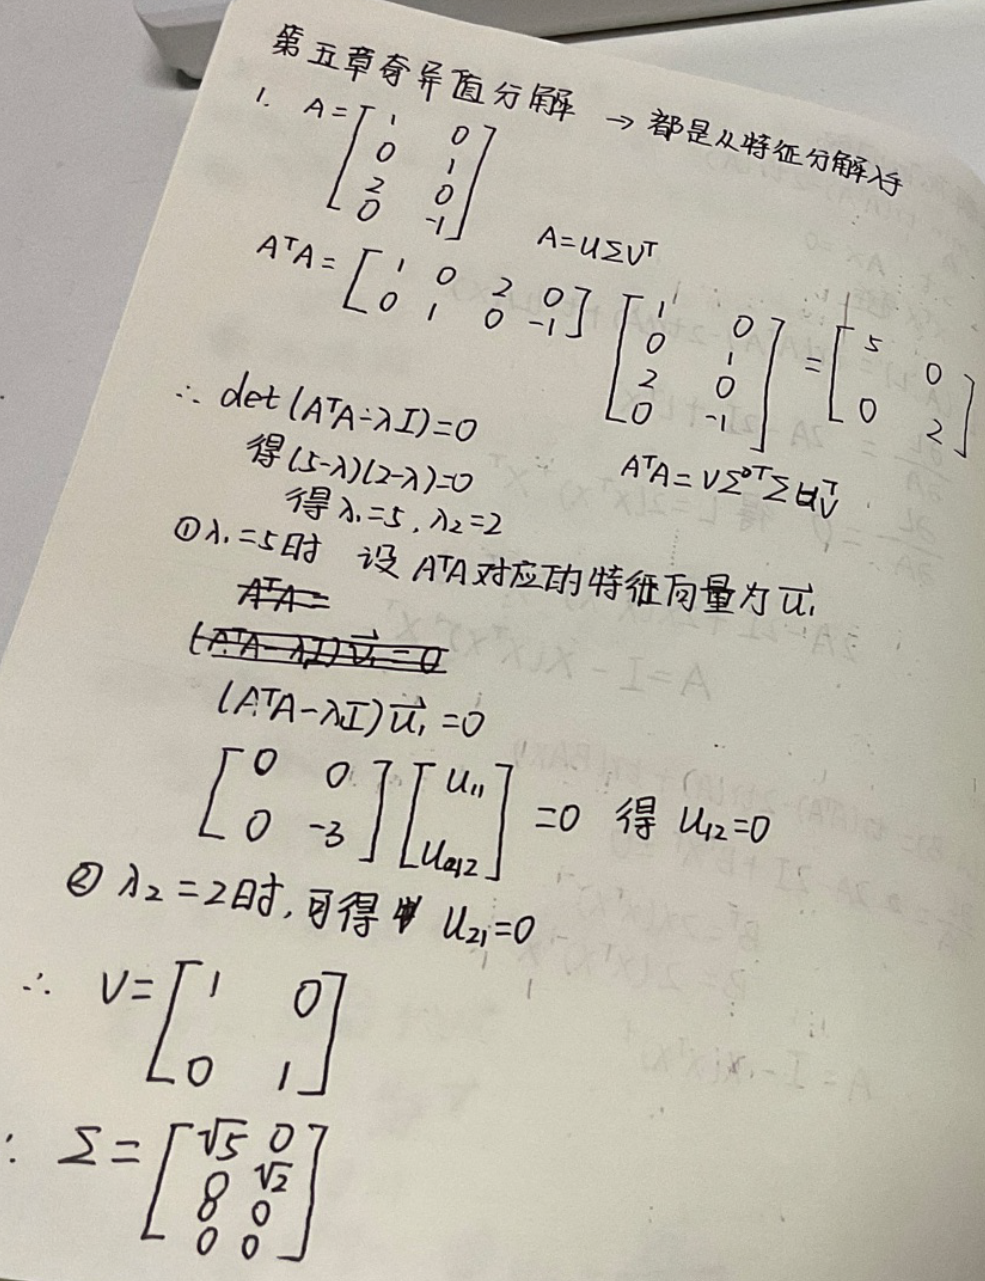 第五章奇异值分解 → 都是从特征分解入手
1. A = [1 0; 0 1; 2 0; 0 -1]
A=UΣVᵀ
AᵀA = [1 0 2 0; 0 1 0 -1] [1 0; 0 1; 2 0; 0 -1] = [5 0; 0 2]
∴ det(AᵀA-λI)=0
AᵀA=VΣᵀΣVᵀ
得(5-λ)(2-λ)=0
得λ₁=5, λ₂=2
①λ₁=5时 设AᵀA对应的特征向量为u⃗₁
AᵀA=
(AᵀA-λI)v⃗₁=0
(AᵀA-λI)u⃗₁=0
[0 0; 0 -3] [u₁₁; u₁₂] =0 得 u₁₂=0
② λ₂=2时, 可得 u₂₁=0
∴ V= [1 0; 0 1]
Σ= [√5 0; 0 √2; 0 0; 0 0]